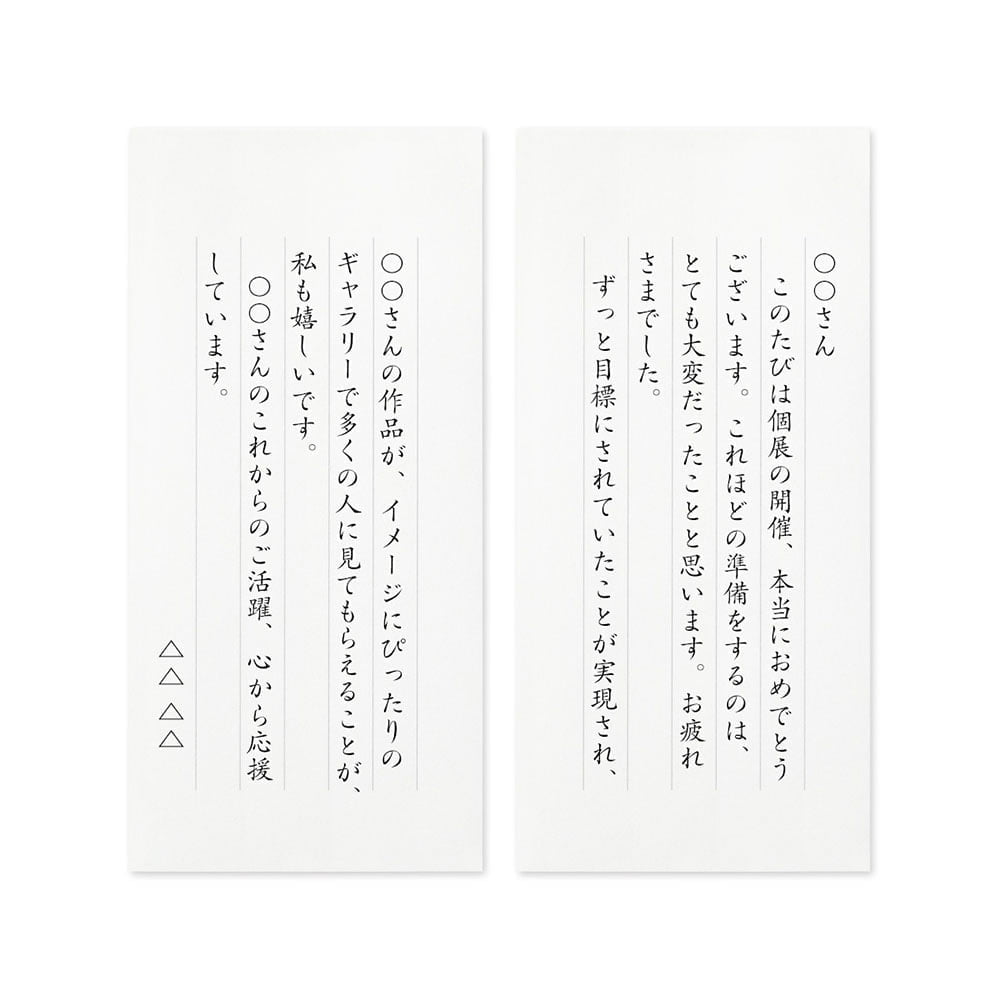 〇〇さん
このたびは個展の開催、本当におめでとう
ございます。これほどの準備をするのは、
とても大変だったことと思います。お疲れ
さまでした。
ずっと目標にされていたことが実現され、
〇〇さんの作品が、イメージにぴったりの
ギャラリーで多くの人に見てもらえることが、
私も嬉しいです。
〇〇さんのこれからのご活躍、心から応援
しています。
△△△△